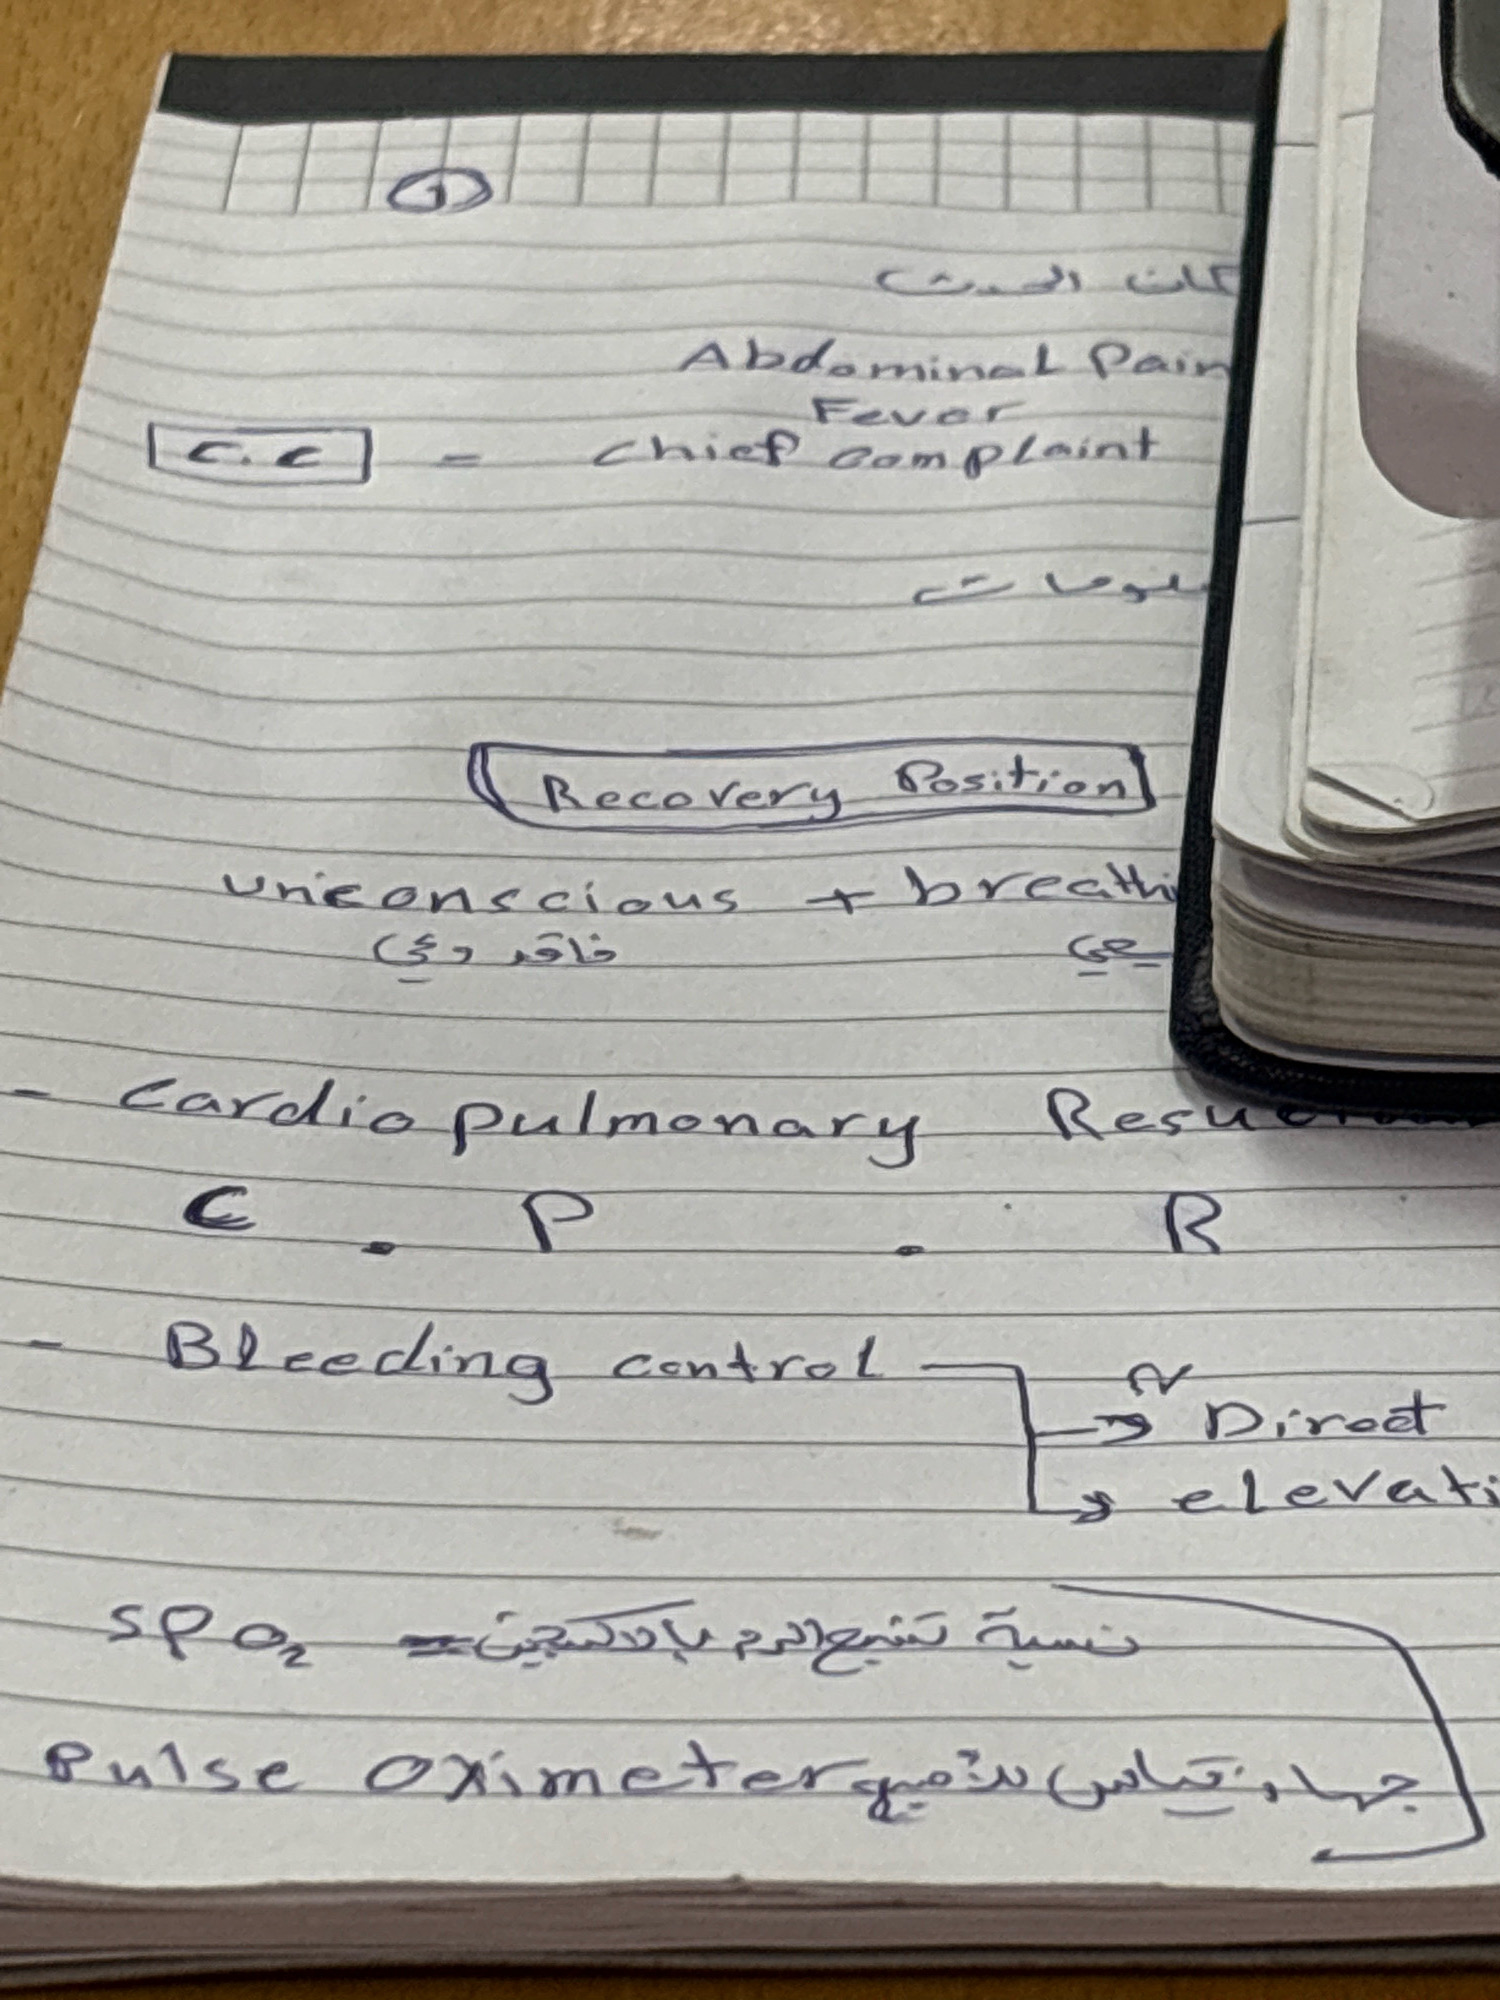 1
الحدث
Abdominal Pain
Fever
C.C = Chief complaint
Recovery Position
unconscious + breathi
فاقد وعي
- Cardiopulmonary
C . P . R
- Bleeding control
→ Direct
→ elevati
SPO2 = نسبة تشبع الدم بالاكسجين
Pulse Oximeter جهاز قياس للتشبع